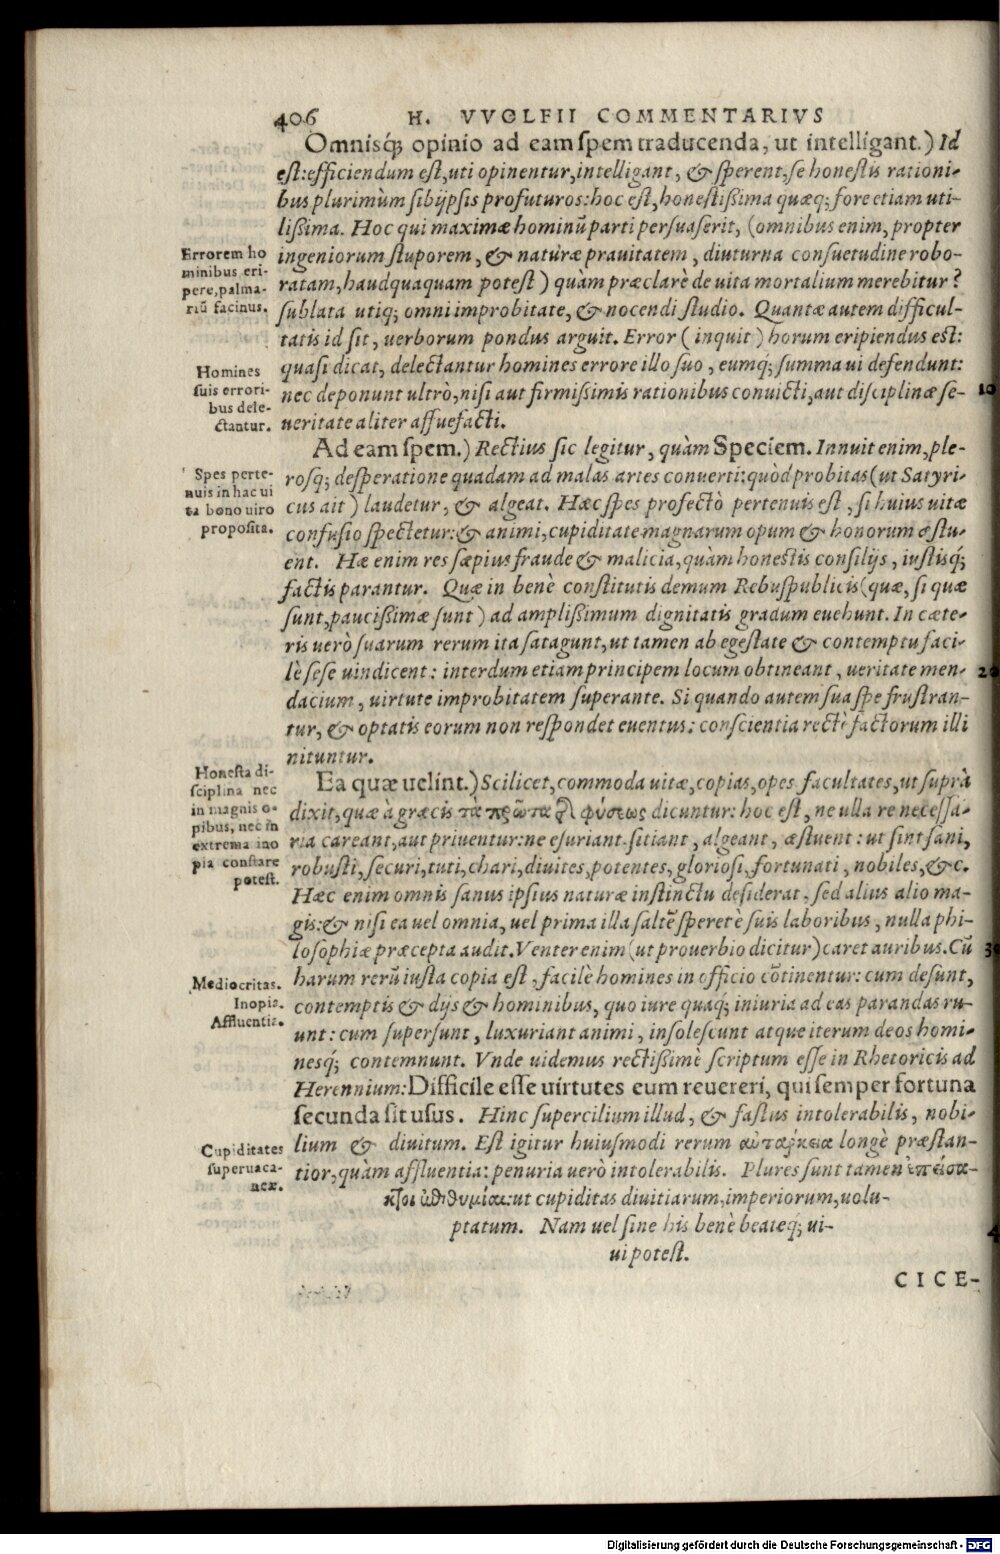 406 H. VVOLFII COMMENTARIVS
Omnisq́; opinio ad eam ſpem traducenda, ut intelligant.) Id
eſt: efficiendum eſt, uti opinentur, intelligant, & ſperent, ſe honeſtis rationi-
bus plurimùm ſibijpſis profuturos: hoc eſt, honeſtiſsima quæq; fore etiam uti-
liſsima. Hoc qui maximæ hominū parti perſuaſerit, (omnibus enim, propter
Errorem ho
minibus eri-
pere, palma-
riū facinus.
ingeniorum ſtuporem, & naturæ prauitatem, diuturna conſuetudine robo-
ratam, haudquaquam poteſt) quàm præclarè de uita mortalium merebitur?
ſublata utiq; omni improbitate, & nocendi ſtudio. Quantæ autem difficul-
tatis id ſit, uerborum pondus arguit. Error (inquit) horum eripiendus est:
Homines
ſuis errori-
bus dele-
ctantur.
quaſi dicat, delectantur homines errore illo ſuo, eumq́; ſumma ui defendunt:
nec deponunt ultrò, niſi aut firmiſsimis rationibus conuicti, aut diſciplinæ ſe- 10
ueritate aliter aſſuefacti.
Ad eam ſpem.) Rectius ſic legitur, quàm Speciem. Innuit enim, ple-
Spes perte-
nuis in hac ui
ta bono uiro
propoſita.
roſq; deſperatione quadam ad malas artes conuerti: quòd probitas (ut Satyri-
cus ait) laudetur, & algeat. Hæc ſpes profectò pertenuis eſt, ſi huius uitæ
confuſio ſpectetur: & animi, cupiditate magnarum opum & honorum æſtu-
ent. Hæ enim res ſæpius fraude & malicia, quàm honeſtis conſilijs, iuſtisq́;
factis parantur. Quæ in benè conſtitutis demum Rebuſpublicis (quæ, ſi quæ
ſunt, pauciſsimæ ſunt) ad ampliſsimum dignitatis gradum euehunt. In cæte-
ris uerò ſuarum rerum ita ſatagunt, ut tamen ab egeſtate & contemptu faci-
lè ſeſe uindicent: interdum etiam principem locum obtineant, ueritate men- 20
dacium, uirtute improbitatem ſuperante. Si quando autem ſua ſpe fruſtran-
tur, & optatis eorum non reſpondet euentus: conſcientia rectè factorum illi
nituntur.
Honeſta di-
ſciplina nec
in magnis o-
pibus, nec in
extrema ino
pia conſtare
poteſt.
Ea quæ uelint.) Scilicet, commoda uitæ, copias, opes facultates, ut ſuprà
dixit, quæ à græcis τὰ πρῶτα ϗ φύσεως dicuntur: hoc eſt, ne ulla re neceſſa-
ria careant, aut priuentur: ne eſuriant, ſitiant, algeant, æſtuent: ut ſint ſani,
robuſti, ſecuri, tuti, chari, diuites, potentes, glorioſi, fortunati, nobiles, &c.
Hæc enim omnis ſanus ipſius naturæ inſtinctu deſiderat, ſed alius alio ma-
gis: & niſi ea uel omnia, uel prima illa ſaltē ſperet è ſuis laboribus, nulla phi-
loſophiæ præcepta audit. Venter enim (ut prouerbio dicitur) caret auribus. Cū 30
Mediocritas.
Inopia.
Affluentia.
harum rerū iuſta copia eſt, facilè homines in officio cōtinentur: cum deſunt,
contemptis & dijs & hominibus, quo iure quaq́; iniuria ad eas parandas ru-
unt: cum ſuperſunt, luxuriant animi, inſoleſcunt atque iterum deos homi-
nesq́; contemnunt. Vnde uidemus rectiſsimè ſcriptum eſſe in Rhetoricis ad
Herennium: Difficile eſſe uirtutes eum reuereri, qui ſemper fortuna
ſecunda ſit uſus. Hinc ſupercilium illud, & faſtus intolerabilis, nobi-
Cupiditates
ſuperuaca-
neæ.
lium & diuitum. Eſt igitur huiuſmodi rerum αὐτάρκεια longè præſtan-
tior, quàm affluentia: penuria uerò intolerabilis. Plures ſunt tamen ἐπείσα-
κτοι ἐπιθυμίαι: ut cupiditas diuitiarum, imperiorum, uolu-
ptatum. Nam uel ſine his benè beateq́; ui-
ui poteſt.
CICE-
Digitalisierung gefördert durch die Deutsche Forschungsgemeinschaft - DFG